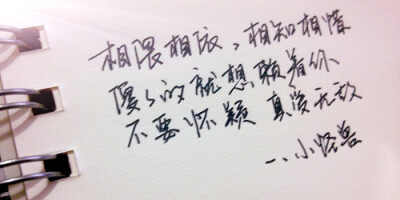 相偎相依，相知相惜
傻々的就想赖着你
不要怀疑 真爱无敌
——小怪兽